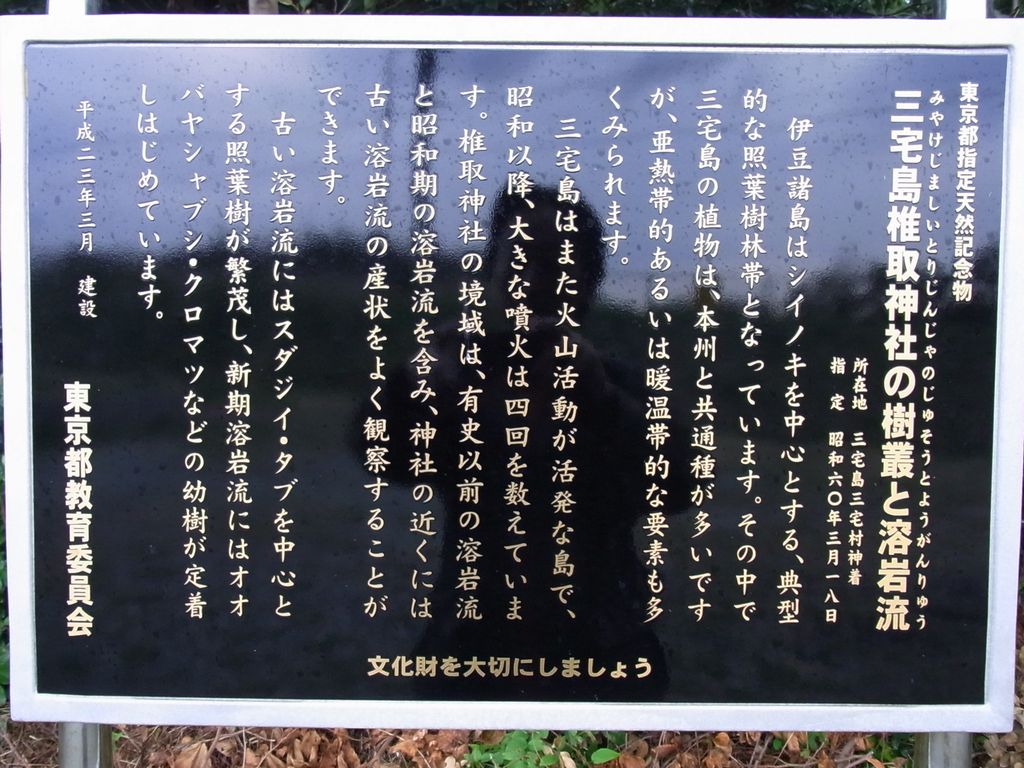 東京都指定天然記念物
みやけじましいとりじんじゃのじゅそうとようがんりゅう
三宅島椎取神社の樹叢と溶岩流
所在地　三宅島三宅村神着
指　定　昭和六〇年三月一八日
伊豆諸島はシイノキを中心とする、典型
的な照葉樹林帯となっています。その中で
三宅島の植物は、本州と共通種が多いです
が、亜熱帯的あるいは暖温帯的な要素も多
くみられます。
三宅島はまた火山活動が活発な島で、
昭和以降、大きな噴火は四回を数えていま
す。椎取神社の境域は、有史以前の溶岩流
と昭和期の溶岩流を含み、神社の近くには
古い溶岩流の産状をよく観察することが
できます。
古い溶岩流にはスダジイ・タブを中心と
する照葉樹が繁茂し、新期溶岩流にはオオ
バヤシャブシ・クロマツなどの幼樹が定着
しはじめています。
平成二三年三月　建設
東京都教育委員会
文化財を大切にしましょう